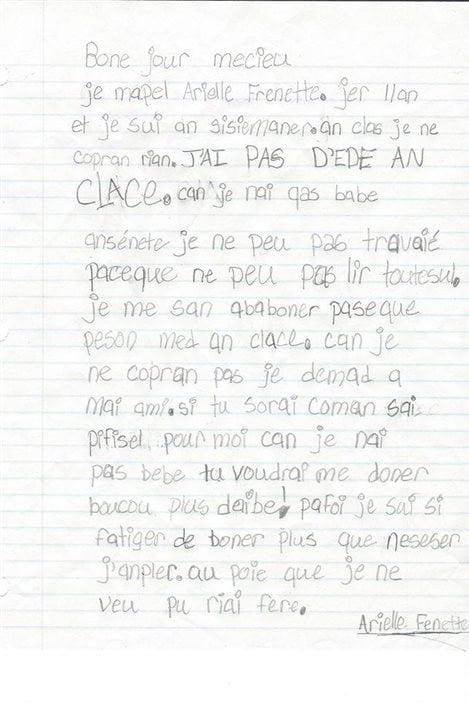 Bone jour mecieu
je mapel Arielle Frenette. jer 11an
et je sui an sisiemaner. an clas je ne
copran rian. J'AI PAS D'EDE AN
CLACE. can je nai qas babe
ansénete je ne peu pas travaié
paceque ne peu pas lir toutesul.
je me san ababoner paseque
peson med an clace. can je
ne copran pas je demad a
mai ami. si tu sorai coman sai
pifisel pour moi can je nai
pas bebe tu voudrai me doner
boucou plus deibe! pafoi je sai si
fatiger de boner plus que neseser
j'anpler. au poie que je ne
veu pu riai fere.
Arielle Fenette